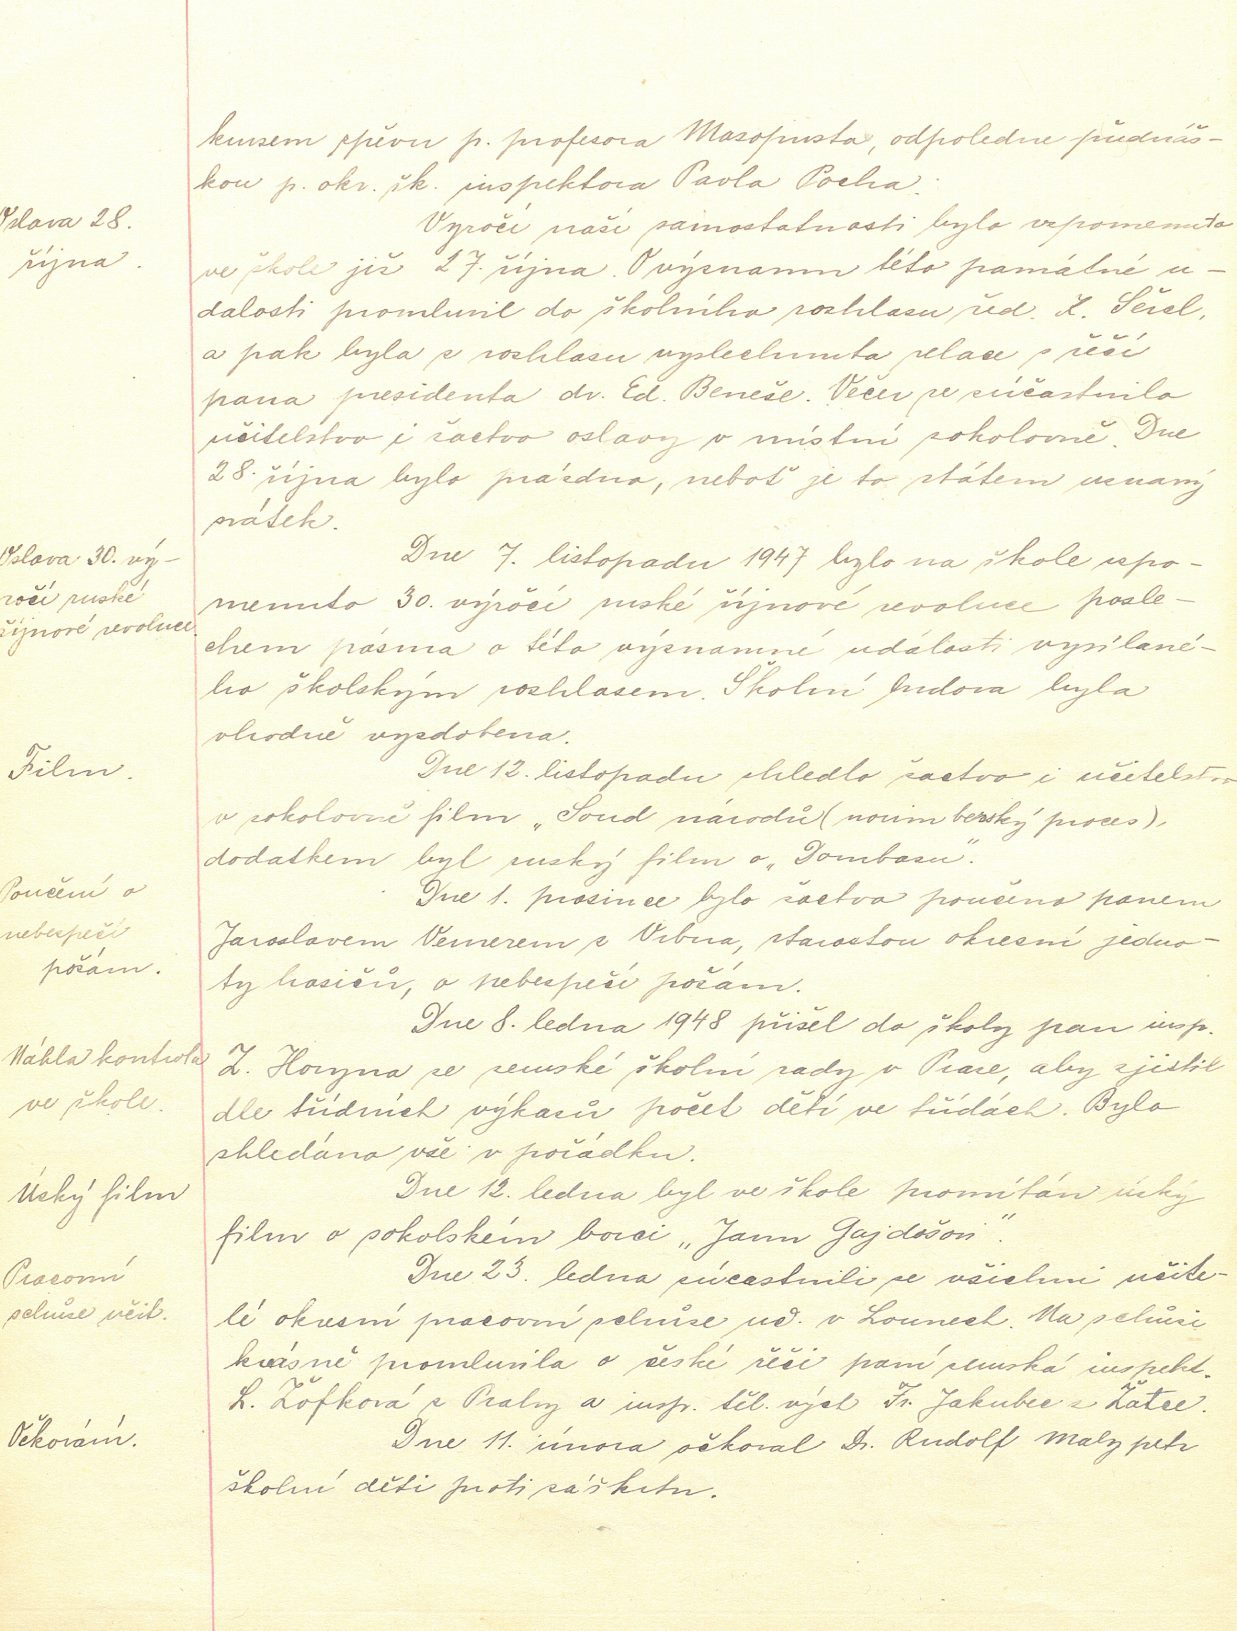 kursem zpěvu p. profesora Masopusta, odpoledne přednáš-
kou p. okr. šk. inspektora Pavla Pocha.
Oslava 28.
října.
Výročí naší samostatnosti bylo vzpomenuto
ve škole již 27. října. O významu této památné u-
dalosti promluvil do školního rozhlasu řed. Z. Šésl,
a pak byla z rozhlasu vyslechnuta relace s řečí
pana presidenta dr. Ed. Beneše. Večer se súčastnilo
učitelstvo i žactvo oslavy v místní sokolovně. Dne
28. října bylo prázdno, neboť je to státem uznaný
svátek.
Oslava 30. vý-
ročí ruské
říjnové revoluce
Dne 7. listopadu 1947 bylo na škole vzpo-
menuto 30. výročí ruské říjnové revoluce posle-
chem pásma o této významné události vysílané-
ho školským rozhlasem. Školní budova byla
vhodně vyzdobena.
Film.
Dne 12. listopadu shledlo žactvo i učitelstvo
v sokolovně film „Soud národů (norimberský proces),
dodatkem byl ruský film o „Dombasu“.
Poučení o
nebezpečí
požárn.
Dne 1. prosince bylo žactvo poučeno panem
Jaroslavem Vernerem z Vrbna, starostou okresní jedno-
ty hasičů, o nebezpečí požárn.
Náhla kontrola
ve škole.
Dne 8. ledna 1948 přišel do školy pan insp.
Z. Horyna ze zemské školní rady v Praze, aby zjistil
dle třídních výkazů počet dětí ve třídách. Bylo
shledáno vše v pořádku.
Úzký film
Dne 12. ledna byl ve škole promítán úzký
film o sokolském borci „Janu Gajdošovi“.
Pracovní
schůze učit.
Dne 23. ledna súcastnili se všichni učite-
lé okresní pracovní schůze uč. v Lounech. Na schůzi
krásně promluvila o české řeči paní zemská inspekt.
L. Žofková z Prahy a insp. těl. vých Fr. Jakubec z Žatce.
Očkování.
Dne 11. února očkoval Dr. Rudolf Malypetr
školní děti proti záškrtu.